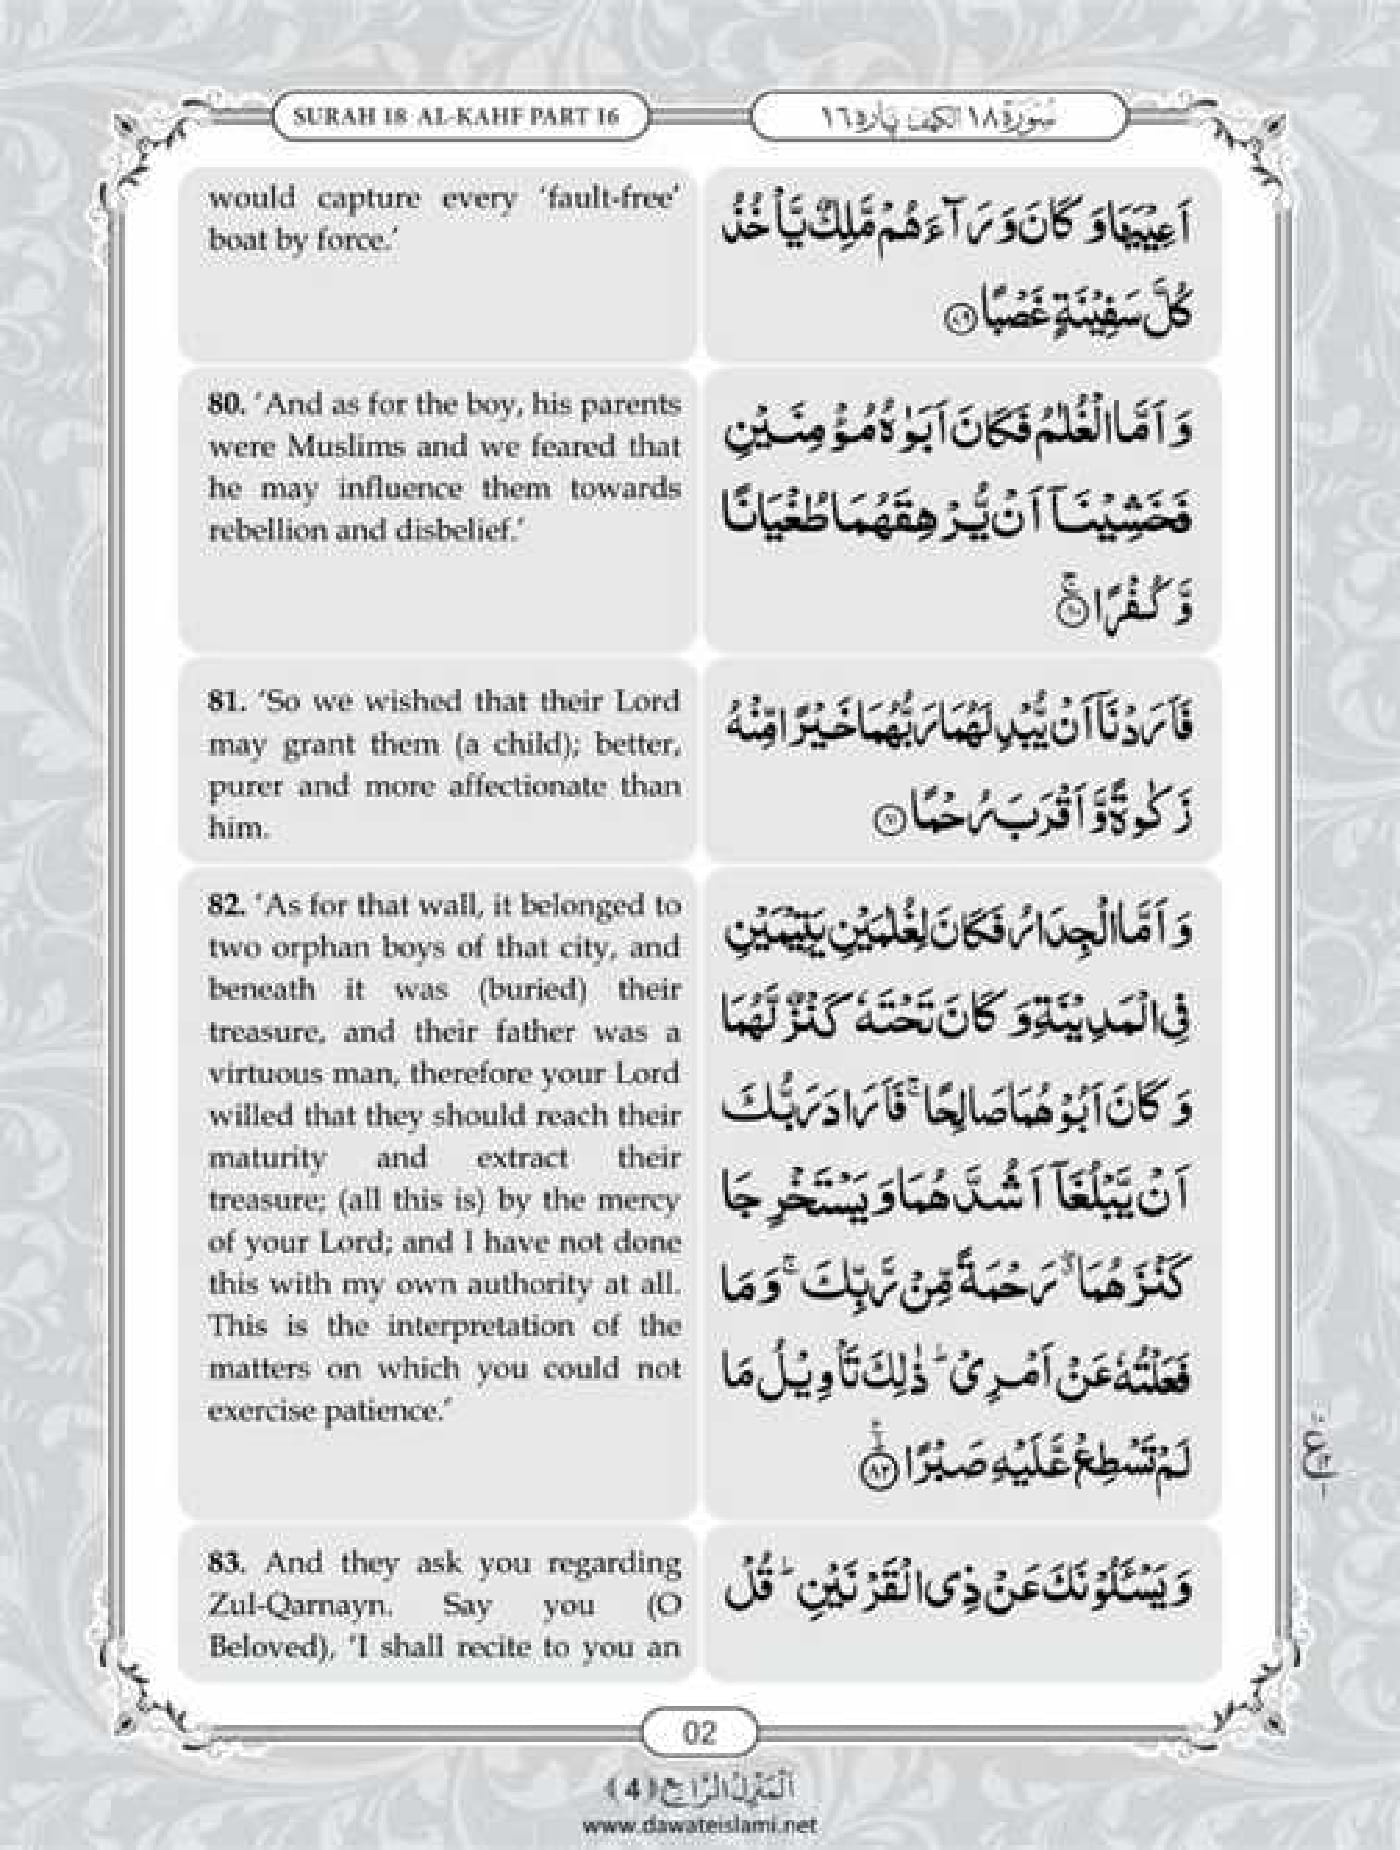 SURAH 18 AL-KAHF PART 16
سُوْرَةُ ١٨ الكهف پاره ١٦
would capture every ‘fault-free’
boat by force.’
اَعِيْبَهَا وَ كَانَ وَرَآءَهُمْ مَّلِكٌ يَّاْخُذُ
كُلَّ سَفِيْنَةٍ غَصْبًا ﴿۷۹﴾
80. ‘And as for the boy, his parents
were Muslims and we feared that
he may influence them towards
rebellion and disbelief.’
وَ اَمَّا الْغُلٰمُ فَكَانَ اَبَوٰهُ مُؤْمِنَيْنِ
فَخَشِيْنَاۤ اَنْ يُّرْهِقَهُمَا طُغْيَانًا
وَّ كُفْرًا ﴿۸۰﴾ۚ
81. ‘So we wished that their Lord
may grant them (a child); better,
purer and more affectionate than
him.
فَاَرَدْنَاۤ اَنْ يُّبْدِلَهُمَا رَبُّهُمَا خَيْرًا مِّنْهُ
زَكٰوةً وَّ اَقْرَبَ رُحْمًا ﴿۸۱﴾
82. ‘As for that wall, it belonged to
two orphan boys of that city, and
beneath it was (buried) their
treasure, and their father was a
virtuous man, therefore your Lord
willed that they should reach their
maturity and extract their
treasure; (all this is) by the mercy
of your Lord; and I have not done
this with my own authority at all.
This is the interpretation of the
matters on which you could not
exercise patience.’
وَ اَمَّا الْجِدَارُ فَكَانَ لِغُلٰمَيْنِ يَتِيْمَيْنِ
فِى الْمَدِيْنَةِ وَ كَانَ تَحْتَهٗ كَنْزٌ لَّهُمَا
وَ كَانَ اَبُوْهُمَا صَالِحًا ۚ فَاَرَادَ رَبُّكَ
اَنْ يَّبْلُغَاۤ اَشُدَّهُمَا وَ يَسْتَخْرِجَا
كَنْزَهُمَا ۖ رَحْمَةً مِّنْ رَّبِّكَ ۚ وَ مَا
فَعَلْتُهٗ عَنْ اَمْرِىْ ؕ ذٰلِكَ تَاْوِيْلُ مَا
لَمْ تَسْطِعْ عَّلَيْهِ صَبْرًا ﴿۸۲﴾
83. And they ask you regarding
Zul-Qarnayn. Say you (O
Beloved), ‘I shall recite to you an
وَ يَسْـَٔلُوْنَكَ عَنْ ذِى الْقَرْنَيْنِ ؕ قُلْ
02
اَلْمَنْزِلُ الرَّابِع ﴿4﴾
www.dawateislami.net